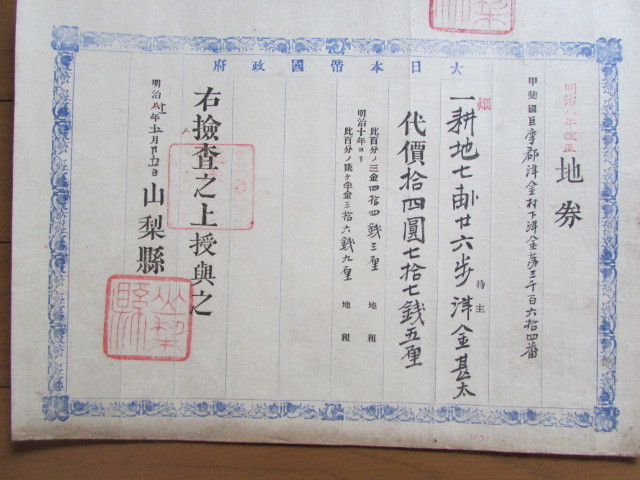 大日本帝國政府
明治八年改正
地券
甲斐國巨摩郡津金村下津金第三千百六拾四番
畑
一耕地七畝廿六歩 持主 津金甚太
代價拾四圓七拾七錢五厘
此百分ノ三金四拾四錢三厘 地租
明治十年ヨリ
此百分ノ貳ケ半金三拾六錢九厘 地租
右撿査之上授與之
明治 年 月 日 山梨縣
山梨縣